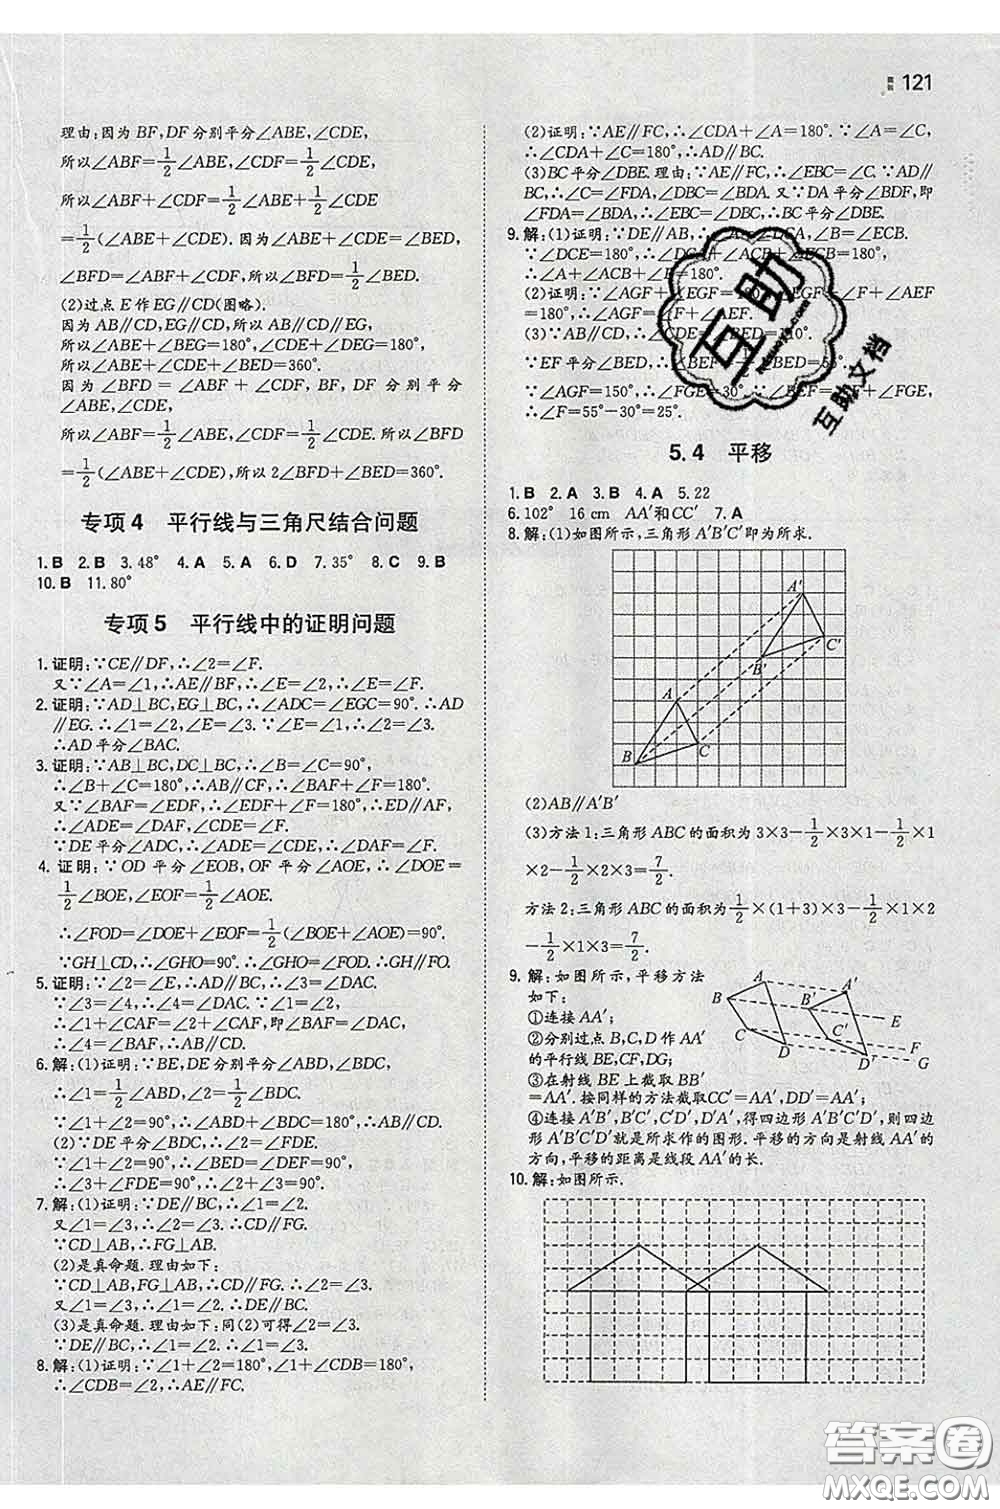 数阅 121
理由:因为 BF,DF 分别平分∠ABE,∠CDE,
所以∠ABF=1/2∠ABE,∠CDF=1/2∠CDE,
所以∠ABF+∠CDF=1/2∠ABE+1/2∠CDE
=1/2(∠ABE+∠CDE).因为∠ABE+∠CDE=∠BED,
∠BFD=∠ABF+∠CDF,所以∠BFD=1/2∠BED.
(2)过点 E 作 EG∥CD(图略).
因为 AB∥CD,EG∥CD,所以 AB∥CD∥EG,
所以∠ABE+∠BEG=180°,∠CDE+∠DEG=180°,
所以∠ABE+∠CDE+∠BED=360°.
因为∠BFD=∠ABF+∠CDF,BF,DF 分别平分
∠ABE,∠CDE,
所以∠ABF=1/2∠ABE,∠CDF=1/2∠CDE,所以∠BFD
=1/2(∠ABE+∠CDE),所以 2∠BFD+∠BED=360°.
专项 4 平行线与三角尺结合问题
1.B 2.B 3.48° 4.A 5.A 6.D 7.35° 8.C 9.B
10.B 11.80°
专项 5 平行线中的证明问题
1.证明:∵CE∥DF,∴∠2=∠F.
又∵∠A=∠1,∴AE∥BF,∴∠E=∠2,∴∠E=∠F.
2.证明:∵AD⊥BC,EG⊥BC,∴∠ADC=∠EGC=90°.∴AD
∥EG.∴∠1=∠2,∠E=∠3.又∵∠E=∠1,∴∠2=∠3.
∴AD 平分∠BAC.
3.证明:∵AB⊥BC,DC⊥BC,∴∠B=∠C=90°,
∴∠B+∠C=180°,∴AB∥CF,∴∠BAF+∠F=180°.
又∵∠BAF=∠EDF,∴∠EDF+∠F=180°,∴ED∥AF,
∴∠ADE=∠DAF,∠CDE=∠F.
∵DE 平分∠ADC,∴∠ADE=∠CDE,∴∠DAF=∠F.
4.证明:∵OD 平分∠EOB,OF 平分∠AOE,∴∠DOE=
1/2∠BOE,∠EOF=1/2∠AOE.
∴∠FOD=∠DOE+∠EOF=1/2(∠BOE+∠AOE)=90°.
∵GH⊥CD,∴∠GHO=90°.∴∠GHO=∠FOD.∴GH∥FO.
5.证明:∵∠2=∠E,∴AD∥BC,∴∠3=∠DAC.
∵∠3=∠4,∴∠4=∠DAC.∵∠1=∠2,
∴∠1+∠CAF=∠2+∠CAF,即∠BAF=∠DAC,
∴∠4=∠BAF,∴AB∥CD.
6.解:(1)证明:∵BE,DE 分别平分∠ABD,∠BDC,
∴∠1=1/2∠ABD,∠2=1/2∠BDC.
∵∠1+∠2=90°,∴∠ABD+∠BDC=180°,∴AB∥CD.
(2)∵DE 平分∠BDC,∴∠2=∠FDE.
∵∠1+∠2=90°,∴∠BED=∠DEF=90°,
∴∠3+∠FDE=90°,∴∠2+∠3=90°.
7.解:(1)证明:∵DE∥BC,∴∠1=∠2.
又∠1=∠3,∴∠2=∠3.∴CD∥FG.
∵CD⊥AB,∴FG⊥AB.
(2)是真命题.理由如下:
∵CD⊥AB,FG⊥AB,∴CD∥FG.∴∠2=∠3.
又∠1=∠3,∴∠1=∠2.∴DE∥BC.
(3)是真命题.理由如下:同(2)可得∠2=∠3.
∵DE∥BC,∴∠1=∠2.∴∠1=∠3.
8.解:(1)证明:∵∠1+∠2=180°,∠1+∠CDB=180°,
∴∠CDB=∠2,∴AE∥FC.
(2)证明:∵AE∥FC,∴∠CDA+∠A=180°.∵∠A=∠C,
∴∠CDA+∠C=180°,∴AD∥BC.
(3)BC 平分∠DBE.理由:∵AE∥FC,∴∠EBC=∠C.∵AD∥
BC,∴∠C=∠FDA,∠DBC=∠BDA.又∵DA 平分∠BDF,即
∠FDA=∠BDA,∴∠EBC=∠DBC,∴BC 平分∠DBE.
9.解:(1)证明:∵DE∥AB,∴∠A=∠ACD,∠B=∠ECB.
∵∠DCE=180°,∴∠ACD+∠ACB+∠ECB=180°,
∴∠A+∠ACB+∠B=180°.
(2)证明:∵∠AGF+∠EGF=180°,∠EGF+∠F+∠AEF
=180°,∴∠AGF=∠F+∠AEF.
(3)∵AB∥CD,∴∠BED=∠EDC=110°.
∵EF 平分∠BED,∴∠BEF=∠DEF=55°.
∵∠AGF=150°,∴∠FGE=30°.∵∠BEF=∠F+∠FGE,
∴∠F=55°-30°=25°.
5.4 平移
1.B 2.A 3.B 4.A 5.22
6.102° 16 cm AA′和CC′ 7.A
8.解:(1)如图所示,三角形 A′B′C′即为所求.
A′
C′
B′
A
B
C
(2)AB∥A′B′
(3)方法 1:三角形 ABC 的面积为 3×3-1/2×3×1-1/2×1
×2-1/2×2×3=7/2.
方法 2:三角形 ABC 的面积为1/2×(1+3)×3-1/2×1×2
-1/2×1×3=7/2.
9.解:如图所示,平移方法
如下:
①连接 AA′;
②分别过点 B,C,D 作 AA′
的平行线 BE,CF,DG;
③在射线 BE 上截取 BB′
=AA′.按同样的方法截取CC′=AA′,DD′=AA′;
④连接 A′B′,B′C′,C′D′,D′A′,得四边形 A′B′C′D′,则四边
形 A′B′C′D′就是所求作的图形.平移的方向是射线 AA′的
方向,平移的距离是线段 AA′的长.
A
B
C
D
A′
B′
C′
D′
E
F
G
10.解:如图所示.
互助
互助文档
答案圈
MXQE.COM